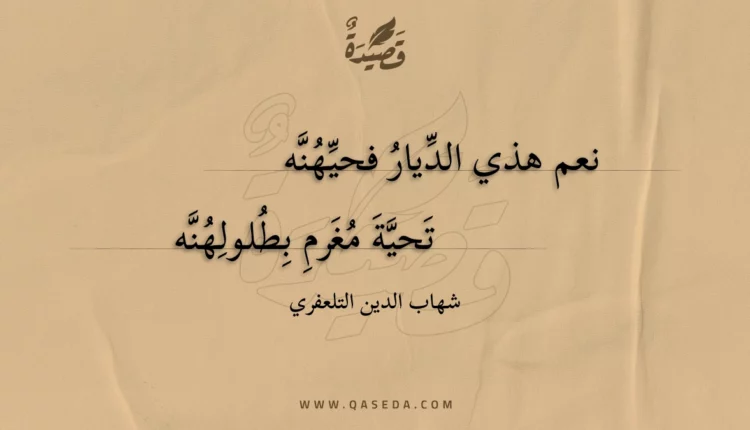 قَصِيدَةٌ
نعم هذي الدِّيارُ فحيِّهُنَّه
تَحيَّةَ مُغَرمِ بِطُلولِهُنَّه
شهاب الدين التلعفري
WWW.QASEDA.COM